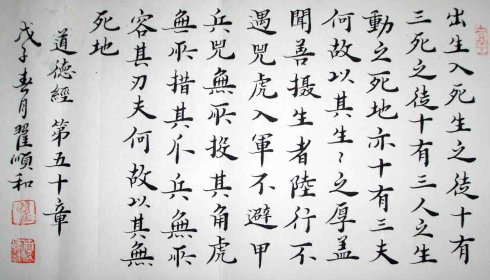 出生入死生之徒十有
三死之徒十有三人之生
動之死地亦十有三夫
何故以其生〻之厚蓋
聞善摄生者陸行不
遇兕虎入軍不避甲
兵兕無所投其角虎
無所措其爪兵無所
容其刃夫何故以其無
死地
道德經 第五十章
戊子春月翟順和